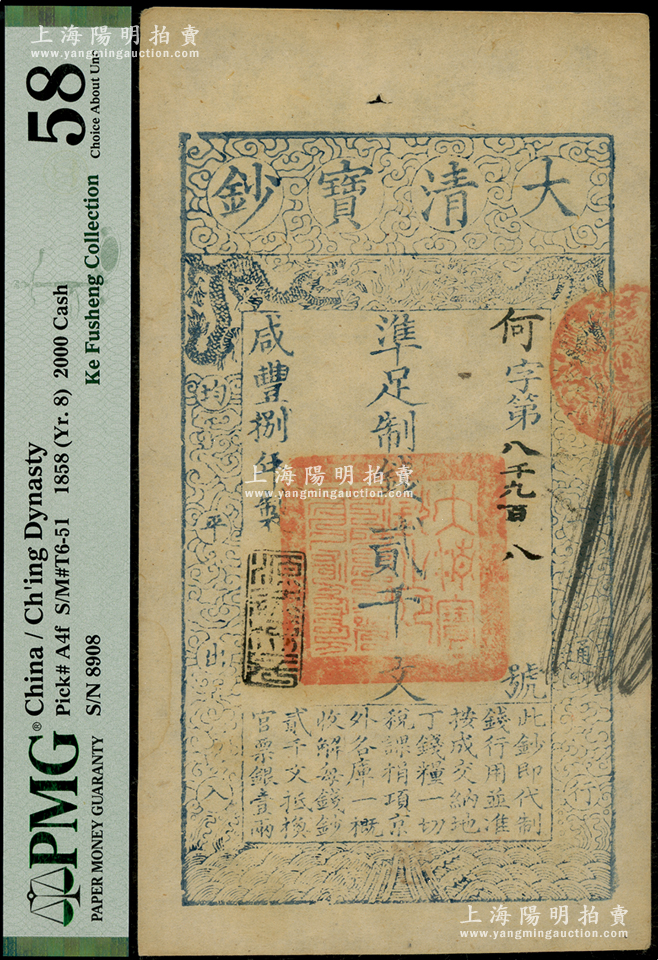 上海陽明拍賣
www.yangmingauction.com
58
Choice About Unc
Ke Fusheng Collection
China / Ch'ing Dynasty
Pick# A4f S/M#T6-51 1858 (Yr. 8) 2000 Cash
S/N 8908
PMG®
PAPER MONEY GUARANTY
大清寶鈔
何字第八千九百八號
準足制錢貳千文
咸豐捌年製
均平出入
通行
此鈔即代制
錢行用並準
按成交納地
丁錢糧一切
稅課捐項京
外各庫一概
收解每錢鈔
貳千文抵換
官票銀壹兩
上海陽明拍賣
www.yangmingauction.com
上海陽明拍賣
www.yangmingauction.com